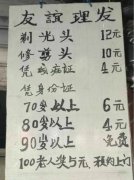 友谊理发
剃光头 12元
修剪头 10元
凭残疾证 4元
凭身份证
70岁以上 6元
80岁以上 4元
90岁以上 免费
100老人奖5元 预约上门